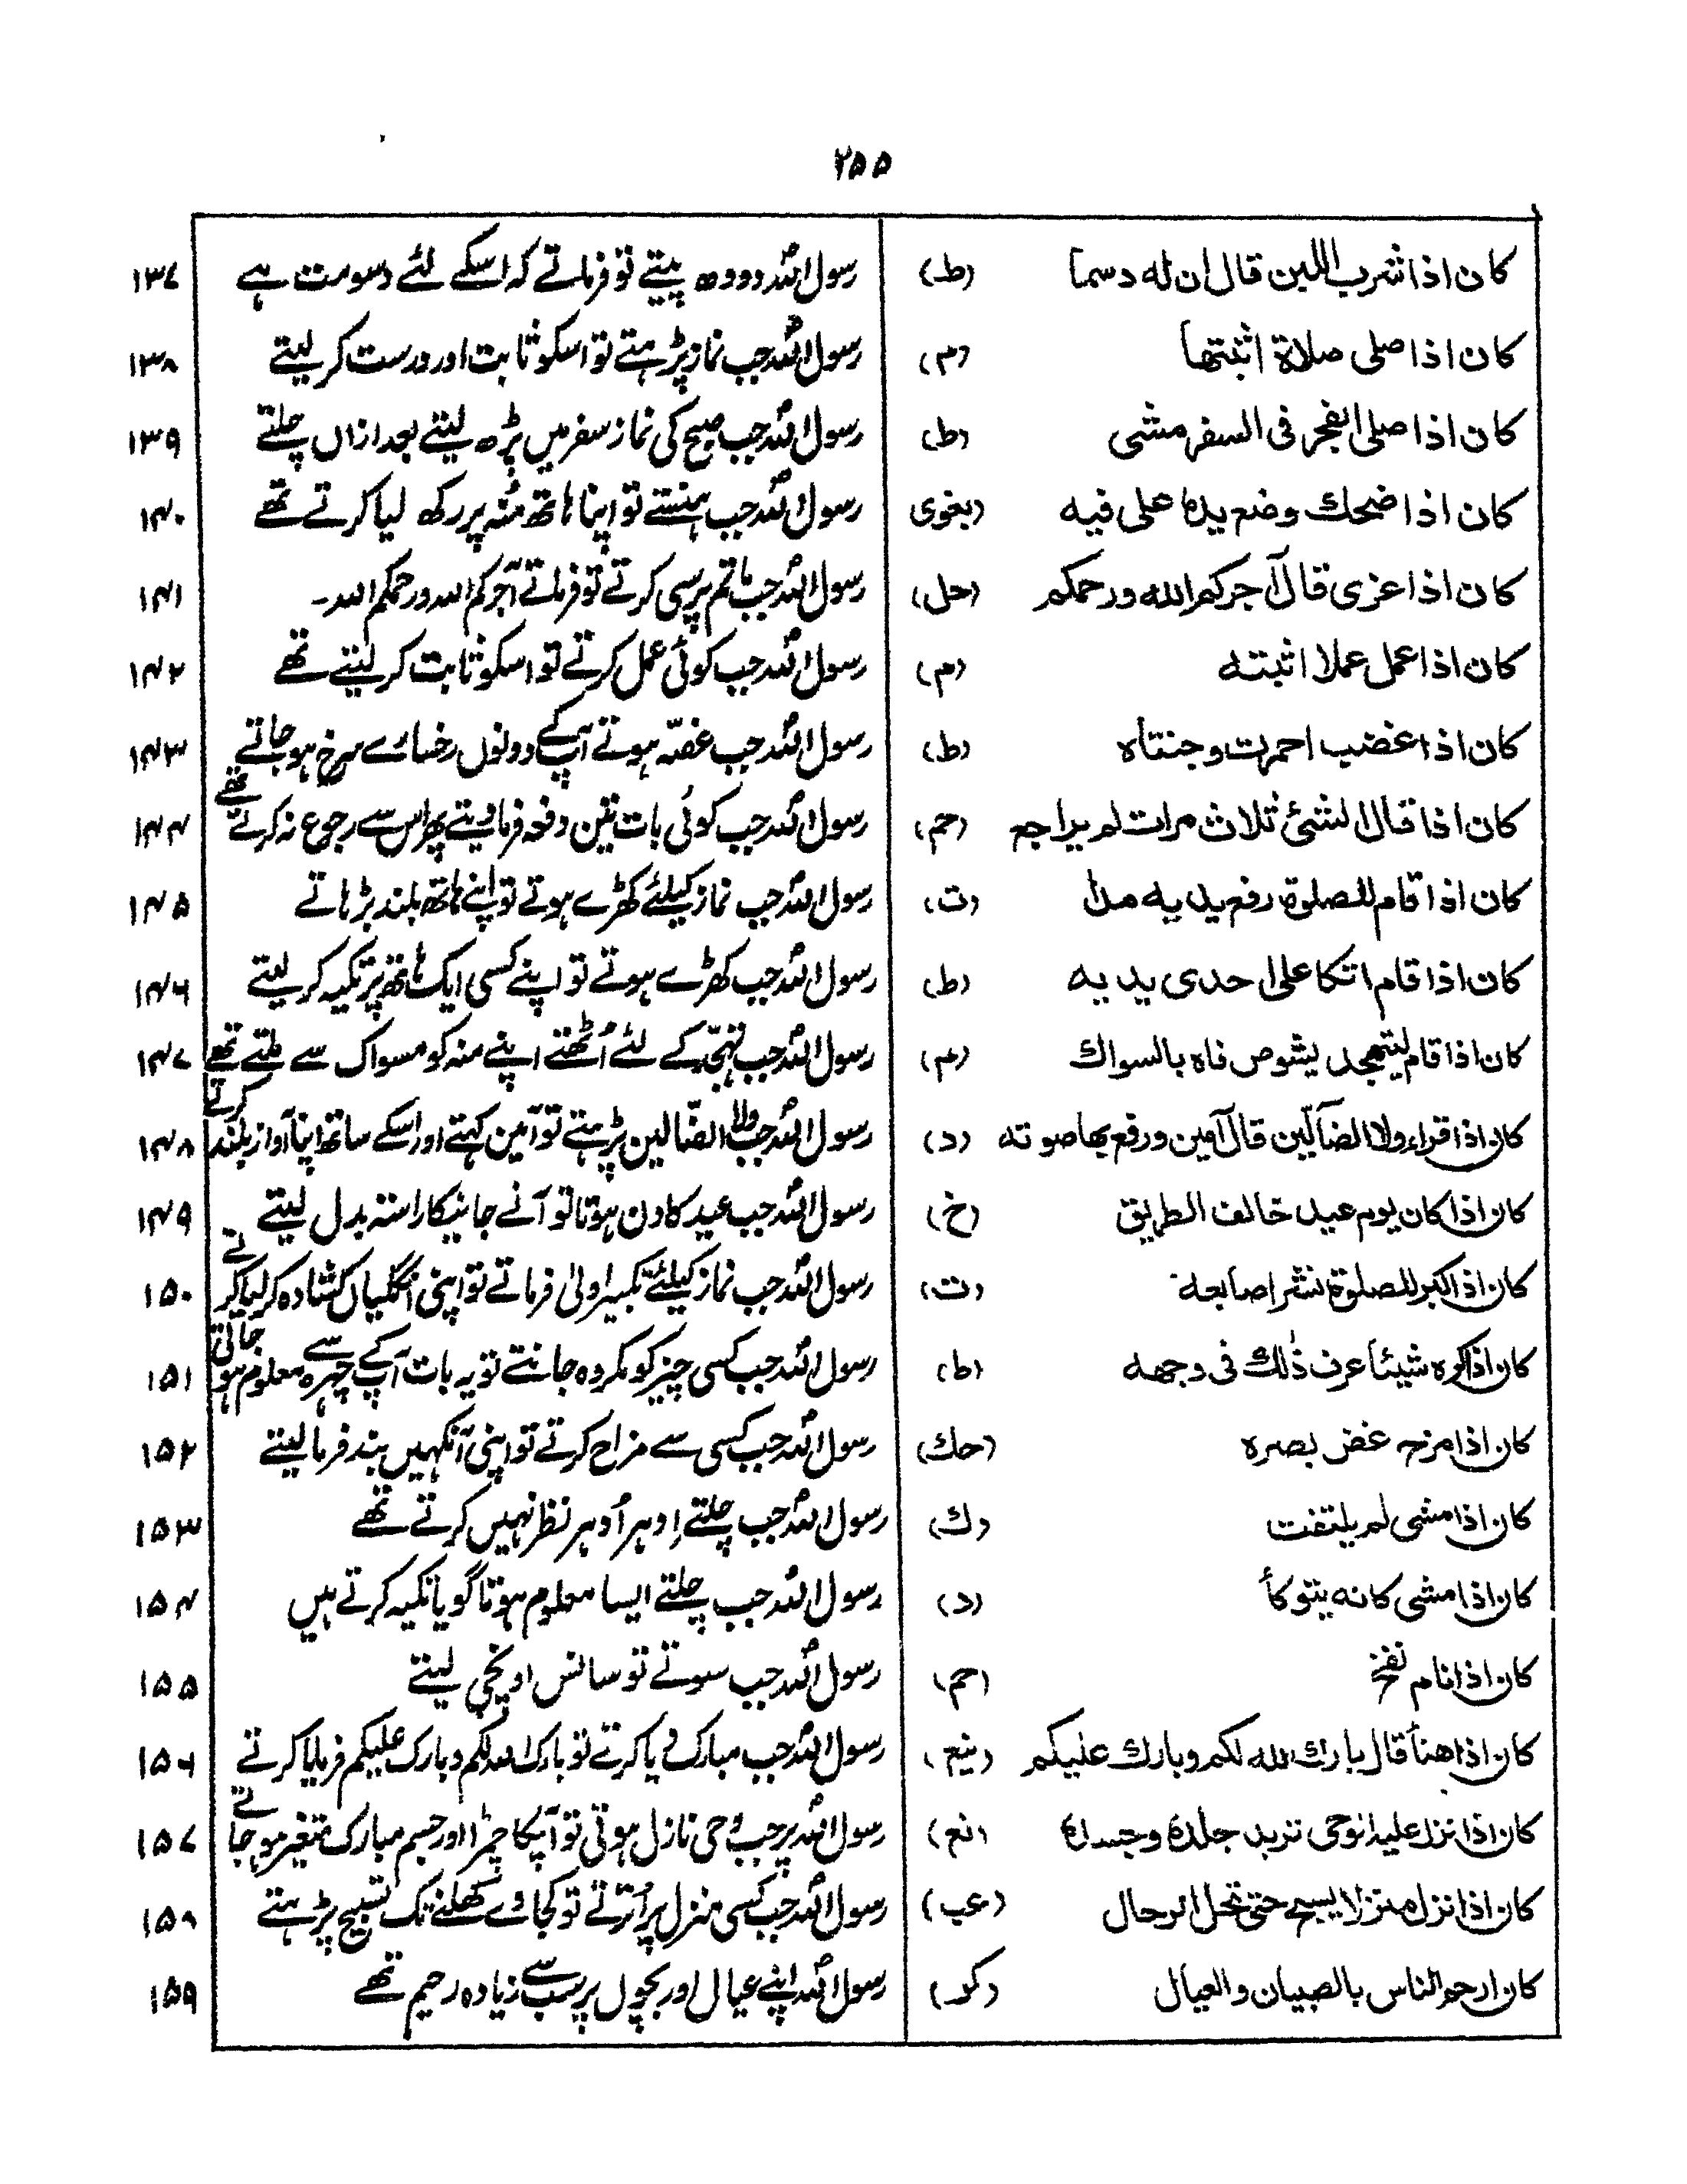 ۲۵۵
كان اذا شرب اللبن قال ان له دسما (ط) رسول اللہ دودھ پیتے تو فرماتے کہ اسکے لئے دسومت ہے ۱۳۷
كان اذا صلى صلاة اثبتها (م) رسول اللہ جب نماز پڑہتے تو اسکو ثابت اور درست کر لیتے ۱۳۸
كان اذا صلى الفجر فى السفر مشى (ط) رسول اللہ جب صبح کی نماز سفر میں پڑھ لیتے بعد ازاں چلتے ۱۳۹
كان اذا ضحك وضع يده على فيه (بغوى) رسول اللہ جب ہنستے تو اپنا ہاتھ مُنہ پر رکھ لیا کرتے تھے ۱۴۰
كان اذا عزى قال آجركم الله ورحمكم (حل) رسول اللہ جب ماتم پرسی کرتے تو فرماتے آجرکم اللہ ورحمکم اللہ۔ ۱۴۱
كان اذا عمل عملا اثبته (م) رسول اللہ جب کوئی عمل کرتے تو اسکو ثابت کر لیتے تھے ۱۴۲
كان اذا غضب احمرت وجنتاه (ط) رسول اللہ جب غصّہ ہوتے آپ کے دونوں رخسارے سرخ ہو جاتے تھے ۱۴۳
كان اذا قال الشئ ثلاث مرات لم يراجع (حم) رسول اللہ جب کوئی بات تین دفعہ فرما دیتے پھر اس سے رجوع نہ کرتے ۱۴۴
كان اذا قام للصلوة رفع يديه مدا (ت) رسول اللہ جب نماز کیلئے کھڑے ہوتے تو اپنے ہاتھ بلند بڑہاتے ۱۴۵
كان اذا قام اتكا على احدى يديه (ط) رسول اللہ جب کھڑے ہوتے تو اپنے کسی ایک ہاتھ پر تکیہ کر لیتے ۱۴۶
كان اذا قام ليتهجد يشوص فاه بالسواك (م) رسول اللہ جب تہجّد کے لئے اُٹھتے اپنے منہ کو مسواک سے ملتے تھے ۱۴۷
كان اذا قراء ولا الضآلّين قال آمين ورفع بها صوته (د) رسول اللہ جب ولا الضّالین پڑہتے تو آمین کہتے اور اسکے ساتھ اپنا آواز بلند کرتے ۱۴۸
كان اذا كان يوم عيد خالف الطريق (خ) رسول اللہ جب عید کا دن ہوتا تو آنے جانیکا راستہ بدل لیتے ۱۴۹
كان اذا كبر للصلوة نشر اصابعه (ت) رسول اللہ جب نماز کیلئے تکبیر اولیٰ فرماتے تو اپنی انگلیاں کشادہ کر لیا کرتے ۱۵۰
كان اذا كره شيئا عرف ذٰلك فى وجهه (ط) رسول اللہ جب کسی چیز کو مکروہ جانتے تو یہ بات آپ کے چہرہ سے معلوم ہو جاتی ۱۵۱
كان اذا مزح غض بصره (حك) رسول اللہ جب کسی سے مزاح کرتے تو اپنی آنکہیں بند فرما لیتے ۱۵۲
كان اذا مشى لم يلتفت (ك) رسول اللہ جب چلتے اِدہر اُدہر نظر نہیں کرتے تھے ۱۵۳
كان اذا مشى كانه يتوكأ (د) رسول اللہ جب چلتے ایسا معلوم ہوتا گویا تکیہ کرتے ہیں ۱۵۴
كان اذا نام نفخ (حم) رسول اللہ جب سوتے تو سانس اونچی لیتے ۱۵۵
كان اذا هنأ قال بارك الله لكم وبارك عليكم (منیع) رسول اللہ جب مبارک دیا کرتے تو بارک اللہ لکم وبارک علیکم فرمایا کرتے ۱۵۶
كان اذا نزل عليه الوحى تربد جلده وجسده (نع) رسول اللہ پر جب وحی نازل ہوتی تو آپکا چمڑا اور جسم مبارک متغیر ہو جاتے ۱۵۷
كان اذا نزل منزلا يسبح حتى تحل الرحال (عب) رسول اللہ جب کسی منزل پر اُترتے تو کجاوے کھلنے تک تسبیح پڑہتے ۱۵۸
كان ارحم الناس بالصبيان والعيال (كر) رسول اللہ اپنے عیال اور بچوں پر سب سے زیادہ رحیم تھے ۱۵۹